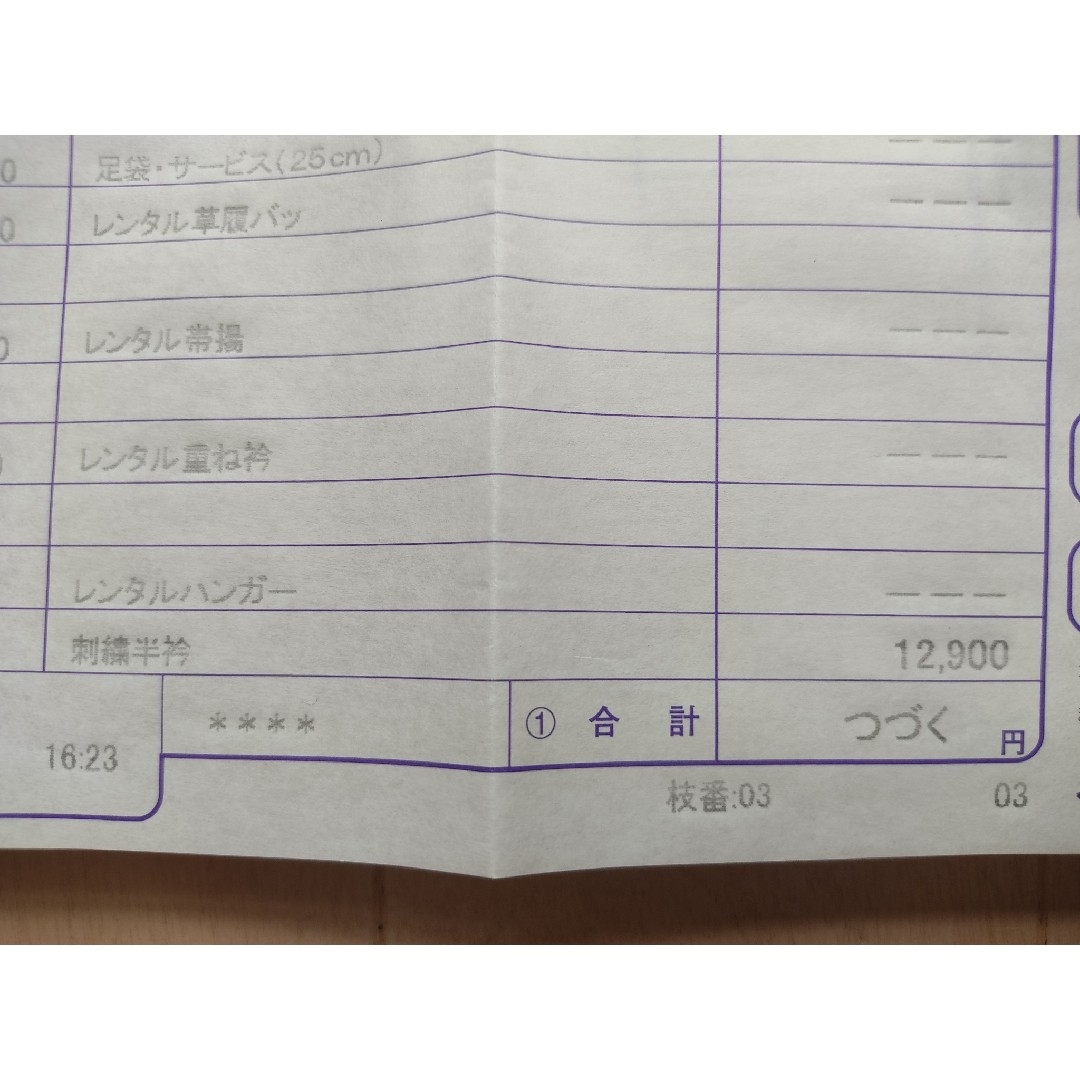 0 足袋・サービス(25cm) ———
0 レンタル草履バッ ———
0 レンタル帯揚 ———
レンタル重ね衿 ———
レンタルハンガー ———
刺繍半衿 12,900
16:23 **** ① 合 計 つづく 円
枝番:03 03